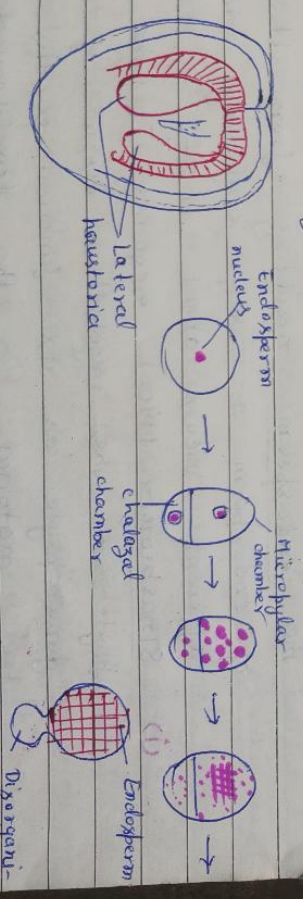 Lateral
haustoria
Endosperm
nucleus
Micropylar
chamber
chalazal
chamber
(i)
Endosperm
Disorgani-